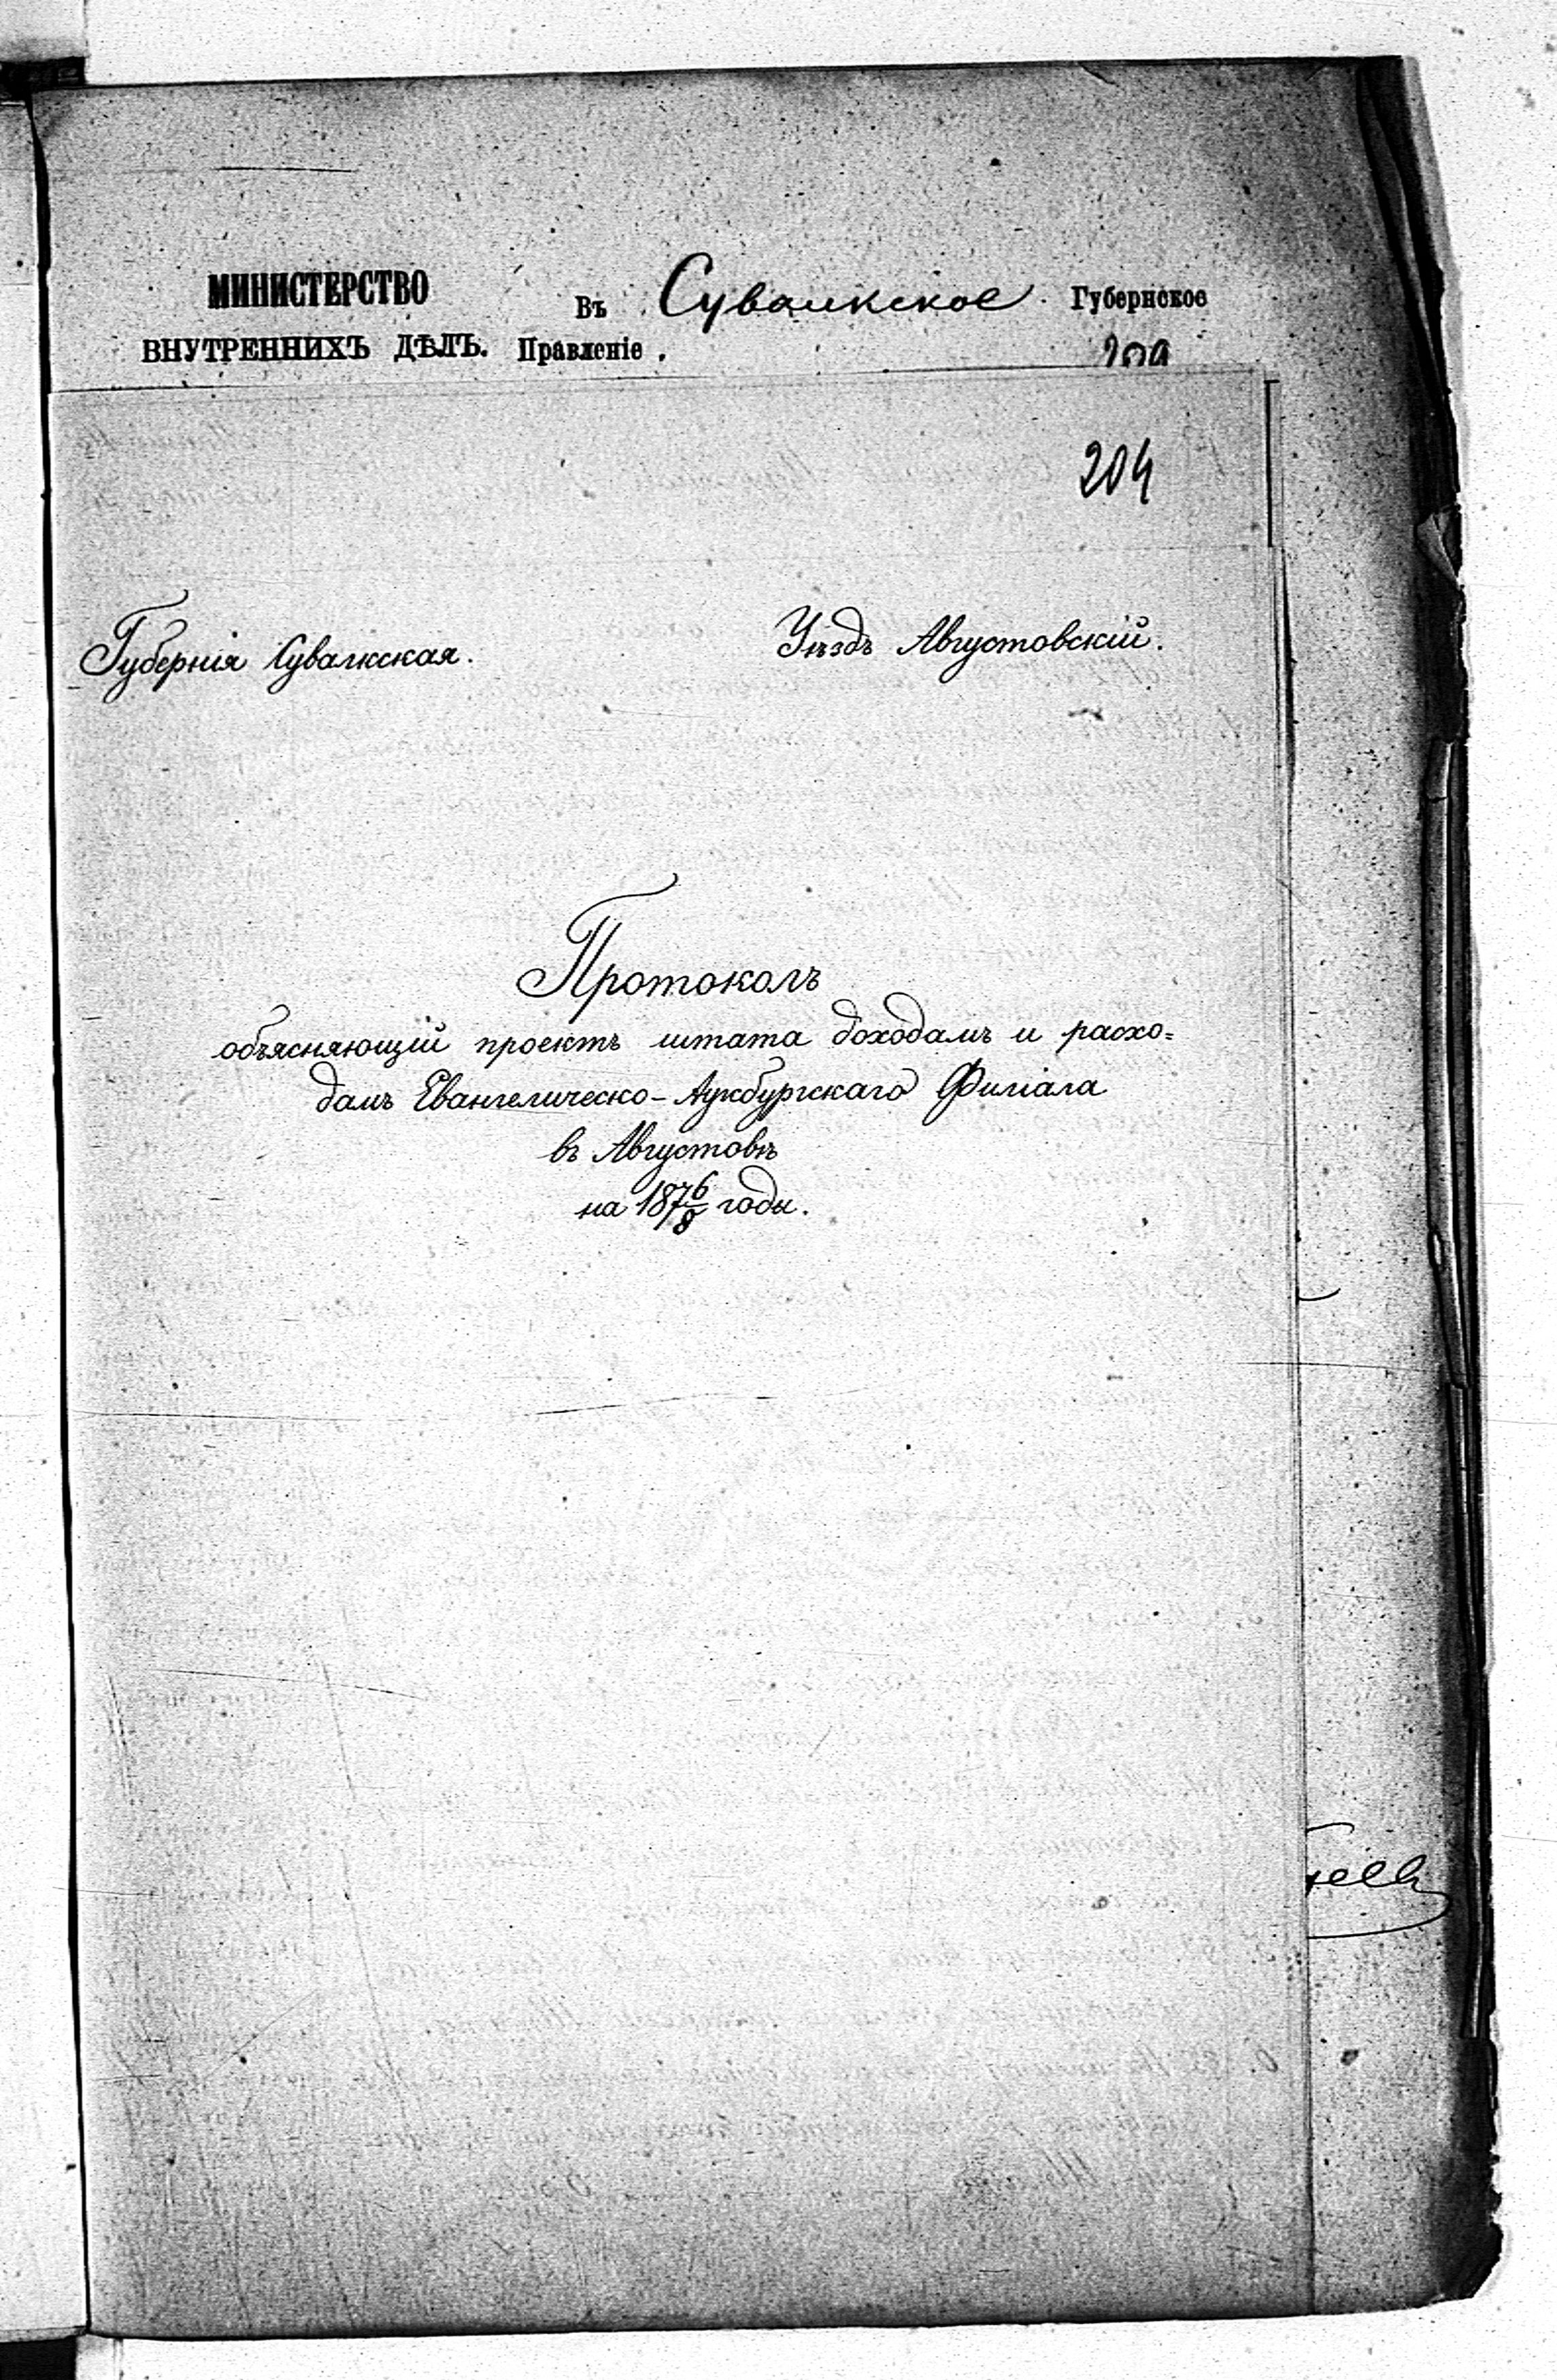 МИНИСТЕРСТВО
ВНУТРЕННИХЪ ДѢЛЪ.
Въ Сувалкское Губернское
Правленіе.
204
Губернія Сувалкская.
Уѣздъ Августовскій.
Протоколъ
объясняющій проектъ штата доходамъ и расхо=
дамъ Евангелическо-Аугсбургскаго Филіала
въ Августовѣ
на 1876/8 годы.